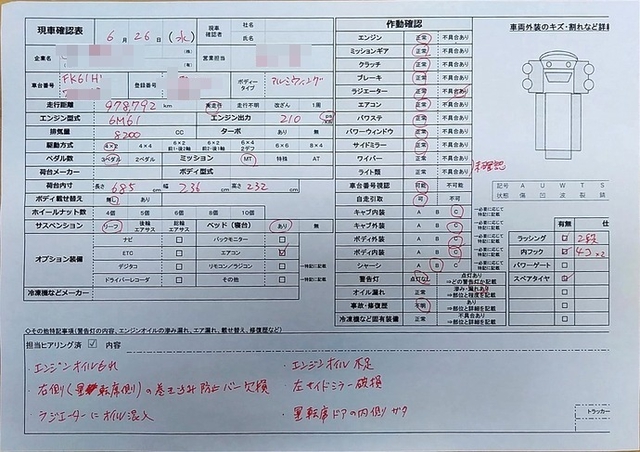 現車確認表
6月 26日 (水)
現車確認者
社名
氏名
企業名
(株)
(有)
営業担当
車台番号
FK61H
登録番号
ボディータイプ
アルミウィング
走行距離 978,792 km 実走行 走行不明 改ざん 1周
エンジン型式 6M61 エンジン出力 210 ps
排気量 8200 CC ターボ あり 無
駆動方式 4×2 6×2 前1・後2軸 6×2 前2・後1軸 6×4 2デフ 6×6 8×4
ペダル数 3ペダル 2ペダル ミッション MT 特殊 AT
荷台メーカー ボディ型式
荷台内寸 長さ 685 cm 幅 236 cm 高さ 232 cm
ボディ載せ替え 無し あり
ホイールナット数 4個 5個 6個 8個 10個
サスペンション リーフ 後輪エアサス 総輪エアサス ベッド(寝台) あり 無
オプション装備
ナビ □ バックモニター □
ETC □ エアコン ☑
デジタコ □ リモコン/ラジコン □ ―特記に記載
ドライブレコーダー □ その他 □ ―特記に記載
冷凍機などメーカー
作動確認
エンジン 正常 不具合あり
ミッションギア 正常 不具合あり
クラッチ 正常 不具合あり
ブレーキ 正常 不具合あり
ラジエーター 正常 不具合あり
エアコン 正常 不具合あり
パワステ 正常 不具合あり
パワーウィンドウ 正常 不具合あり
サイドミラー 正常 不具合あり
ワイパー 正常 不具合あり
ライト類 正常 不具合あり
未確認
車台番号視認 可能 不可能
自走引取 可 不可
キャブ内装 A B C ―必要に応じて特記に記載
キャブ外装 A B C ―必要に応じて特記に記載
ボディ外装 A B C ―必要に応じて特記に記載
ボディ内装 A B C ―必要に応じて特記に記載
シャーシ A B C
警告灯 点灯なし 点灯あり ⇒どの警告灯か記載
オイル漏れ 正常 滲み・漏れあり ⇒部位と程度を記載
事故・修復歴 不明 あり ⇒部位と詳細を記載
冷凍機など固有装備 正常 不具合あり ⇒部位と詳細を記載
車両外装のキズ・割れなど詳細
記号 A U W T S
状態 傷 凹 波 裂 錆
有無 仕様
ラッシング 2段
内フック 4コ×2
パワーゲート □
スペアタイヤ
◇その他特記事項(警告灯の内容、エンジンオイルの滲み漏れ、エア漏れ、載せ替え、修復歴など)
担当ヒアリング済 ☑ 内容
・エンジンオイルもれ
・エンジンオイル不足
・右側(運転席側)の巻き込み防止バー欠損
・左サイドミラー破損
・ラジエーターにオイル混入
・運転席ドアの内側ガタ
トラッカー